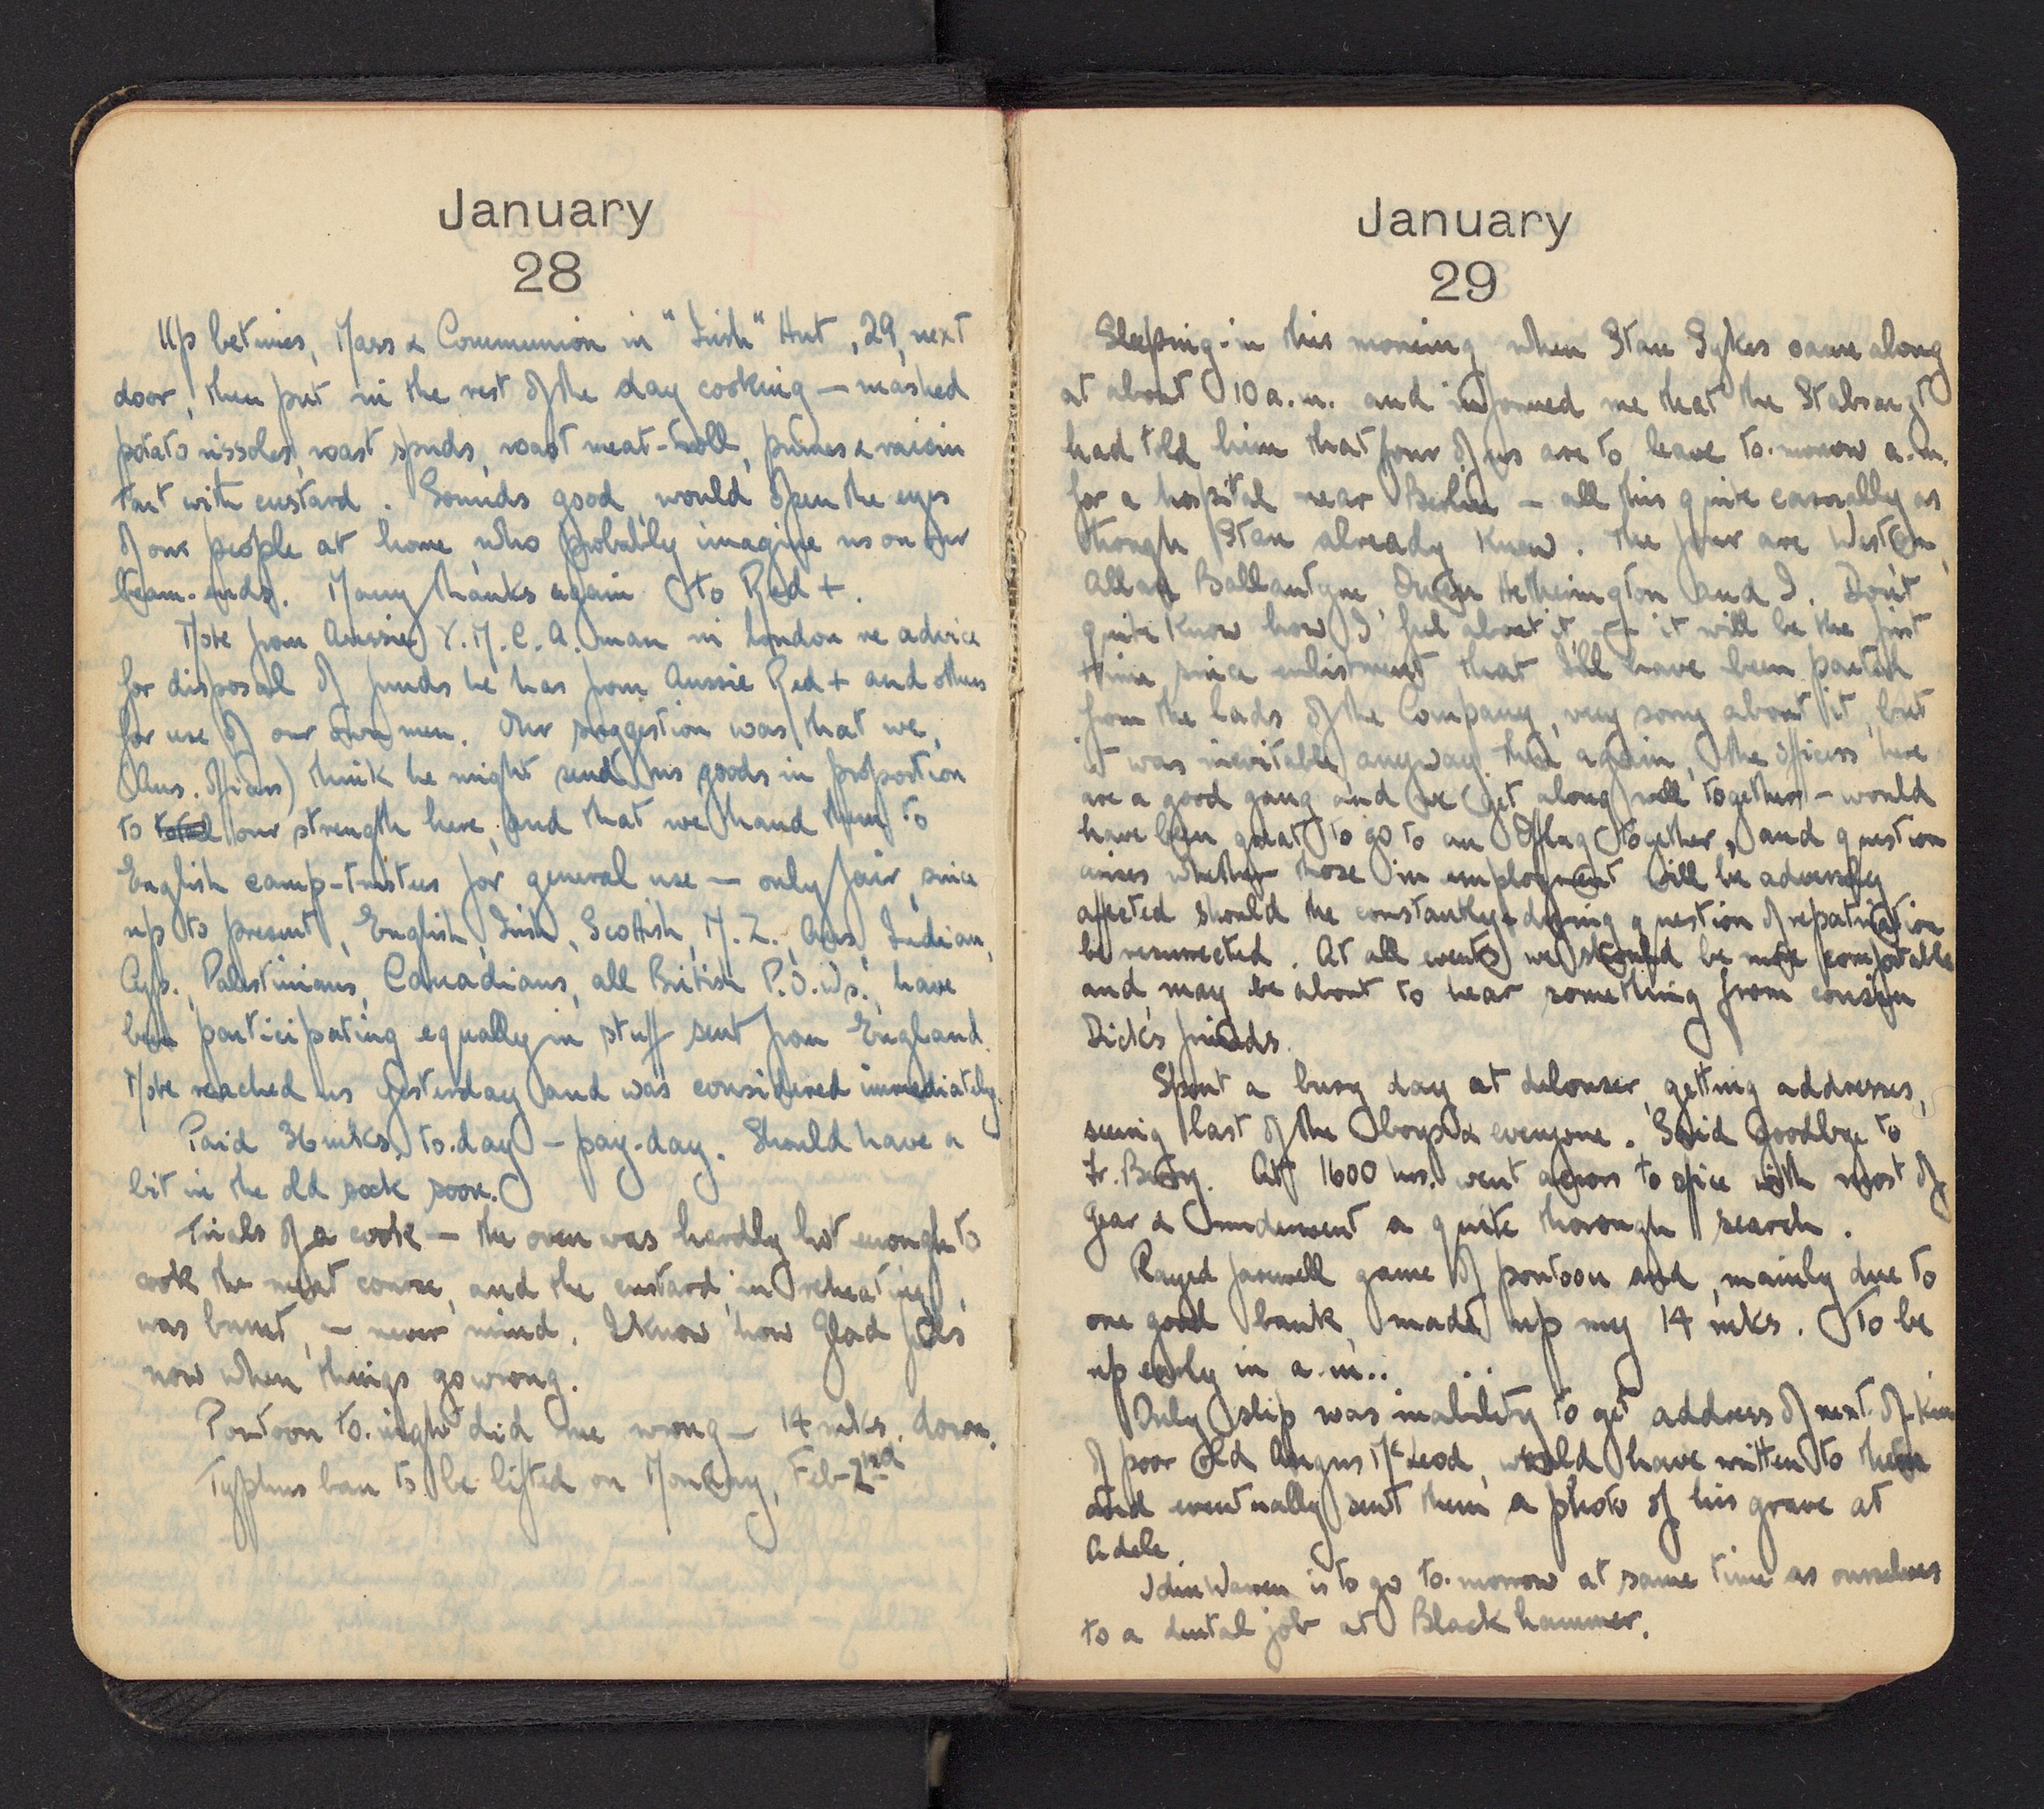 January
28
Up betimes, Mass & Communion in "Irish" Hut, 29, next
door, then put in the rest of the day cooking — mashed
potato rissoles, roast spuds, roast meat-roll, prunes & raisin
tart with custard. Sounds good, would open the eyes
of our people at home who probably imagine us on our
beam-ends. Many thanks again to Red +.
Note from Aussie Y.M.C.A. man in London re advice
for disposal of funds he has from Aussie Red + and others
for use of our own men. Our suggestion was that we,
(Aus. officers) think he might send us goods in proportion
to total our strength here, and that we hand them to
English camp-trustees for general use — only fair, since
up to present, English, Irish, Scottish, N.Z., Aus, Indian,
Cyp., Palestinians, Canadians, all British P.O.Ws., have
been participating equally in stuff sent from England.
Note reached us yesterday and was considered immediately.
Paid 36 mks. to-day — pay-day. Should have a
bit in the old sock soon.
Trials of a cook — the oven was hardly hot enough to
cook the meat course, and the custard, in reheating,
was burnt, — never mind. I know how Glad feels
now when things go wrong.
Pontoon to-night did me wrong — 14 mks. down.
Typhus ban to be lifted on Monday, Feb 2nd
January
29
Sleeping-in this morning when Stan Sykes came along
at about 10 a.m. and informed me that the Stabsarzt
had told him that four of us are to leave to-morrow a.m.
for a hospital near Berlin — all this quite casually as
though Stan already knew. The four are Weston,
Allan Ballantyne Hetherington and I. Don't
quite know how I feel about it — it will be the first
time since enlistment that I'll have been parted
from the lads of the Company, very sorry about it, but
it was inevitable anyway. Then again, the officers here
are a good gang and we get along well together — would
have been great to go to an Oflag together, and question
arises whether those in employment will be adversely
affected should the constantly-dying question of repatriation
be resurrected. At all events we should be more comfortable
and may be about to hear something from cousin
Dick's friends.
Spent a busy day at delouser, getting addresses,
seeing last of the boys & everyone. Said Goodbye to
Fr. At 1600 hrs. went across to office with most of
gear & underwent a quite thorough search.
Played farewell game of pontoon and, mainly due to
one good bank, made up my 14 mks. To be
up early in a.m.. ..
Only slip was inability to get address of next-of-kin
of poor old Angus McLeod, would have written to them
and eventually sent them a photo of his grave at
Adele.
John Warren is to go to-morrow at same time as ourselves
to a dental job at Blackhammer.